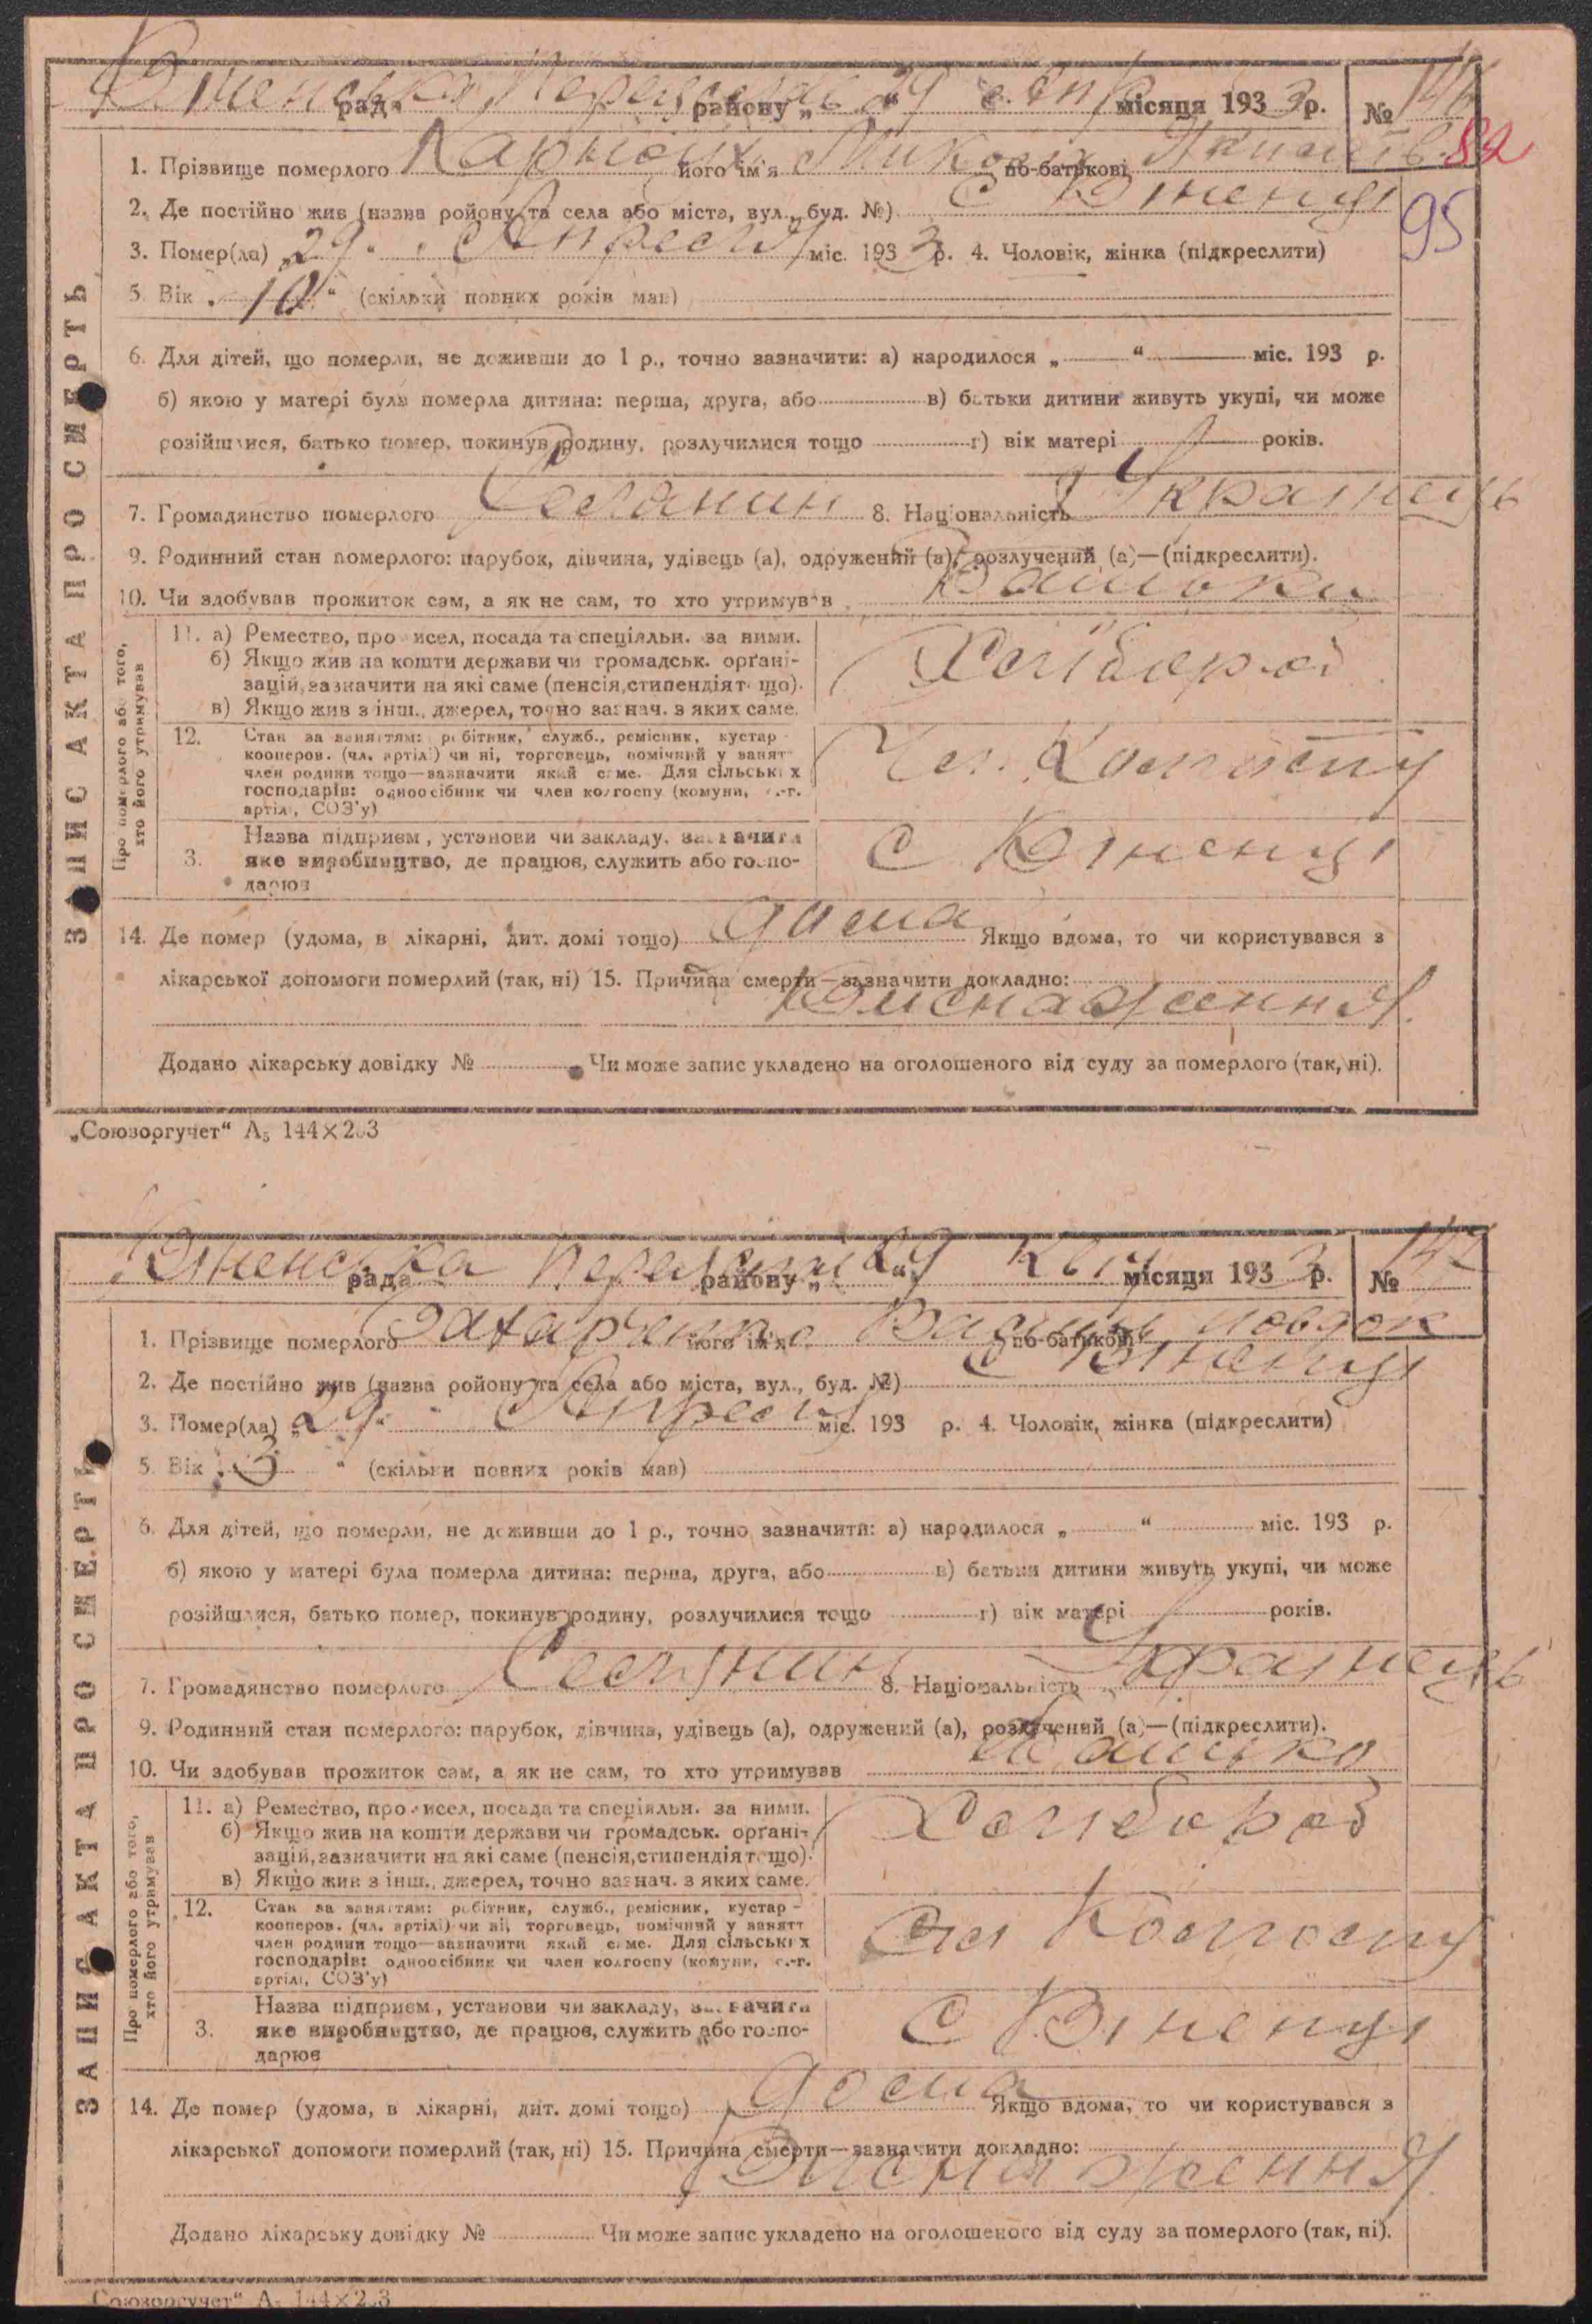 рада району „29“ місяця 1933 р. № 146
82
1. Прізвище померлого його ім'я Микола по-батькові
2. Де постійно жив (назва ройону та села або міста, вул., буд. №) с Втенці
95
3. Помер(ла) „29“ Апреля міс. 1933 р. 4. Чоловік, жінка (підкреслити)
5. Вік „10“ (скільки повних років мав)
6. Для дітей, що померли, не доживши до 1 р., точно зазначити: а) народилося „ “ міс. 193 р.
б) якою у матері була померла дитина: перша, друга, або в) батьки дитини живуть укупі, чи може
розійшлися, батько помер, покинув родину, розлучилися тощо г) вік матері років.
7. Громадянство померлого Селянин 8. Національність Українець
9. Родинний стан померлого: парубок, дівчина, удівець (а), одружений (а), розлучений (а)—(підкреслити).
10. Чи здобував прожиток сам, а як не сам, то хто утримував Батьки
ЗАПИС АКТА ПРО СМЕРТЬ
Про померлого або того, хто його утримував
11. а) Ремество, промисел, посада та спеціяльн. за ними.
б) Якщо жив на кошти держави чи громадськ. орґані-
зацій, зазначити на які саме (пенсія, стипендія тощо).
в) Якщо жив з інш., джерел, точно зазнач. з яких саме.
Хлібороб
12. Стан за заняттям: робітник, служб., ремісник, кустар -
кооперов. (чл. артілі) чи ні, торговець, помічний у занятт
член родини тощо—зазначити який саме. Для сільських
господарів: одноосібник чи член колгоспу (комуни, с.-г.
артілі, СОЗ'у)
Чл. Колгоспу
3. Назва підприєм., установи чи закладу, зазначити
яке виробництво, де працює, служить або госпо-
дарює
с Втенці
14. Де помер (удома, в лікарні, дит. домі тощо) дома Якщо вдома, то чи користувався з
лікарської допомоги померлий (так, ні) 15. Причина смерти—зазначити докладно:
Виснаження
Додано лікарську довідку № Чи може запис укладено на оголошеного від суду за померлого (так, ні).
„Союзоргучет“ А₅ 144×203
рада району „29“ місяця 1933 р. № 147
1. Прізвище померлого Захарченко його ім'я по-батькові
2. Де постійно жив (назва ройону та села або міста, вул., буд. №) с Втенці
3. Помер(ла) „29“ Апреля міс. 193 р. 4. Чоловік, жінка (підкреслити)
5. Вік „3“ (скільки повних років мав)
6. Для дітей, що померли, не доживши до 1 р., точно зазначити: а) народилося „ “ міс. 193 р.
б) якою у матері була померла дитина: перша, друга, або в) батьки дитини живуть укупі, чи може
розійшлися, батько помер, покинув родину, розлучилися тощо г) вік матері років.
7. Громадянство померлого Селянин 8. Національність Українець
9. Родинний стан померлого: парубок, дівчина, удівець (а), одружений (а), розлучений (а)—(підкреслити).
10. Чи здобував прожиток сам, а як не сам, то хто утримував Батько
ЗАПИС АКТА ПРО СМЕРТЬ
Про померлого або того, хто його утримував
11. а) Ремество, промисел, посада та спеціяльн. за ними.
б) Якщо жив на кошти держави чи громадськ. орґані-
зацій, зазначити на які саме (пенсія, стипендія тощо).
в) Якщо жив з інш., джерел, точно зазнач. з яких саме.
Хлібороб
12. Стан за заняттям: робітник, служб., ремісник, кустар -
кооперов. (чл. артілі) чи ні, торговець, помічний у занятт
член родини тощо—зазначити який саме. Для сільських
господарів: одноосібник чи член колгоспу (комуни, с.-г.
артілі, СОЗ'у)
Колгоспу
3. Назва підприєм., установи чи закладу, зазначити
яке виробництво, де працює, служить або госпо-
дарює
с Втенці
14. Де помер (удома, в лікарні, дит. домі тощо) дома Якщо вдома, то чи користувався з
лікарської допомоги померлий (так, ні) 15. Причина смерти—зазначити докладно:
Виснаження
Додано лікарську довідку № Чи може запис укладено на оголошеного від суду за померлого (так, ні).
„Союзоргучет“ А₅ 144×203